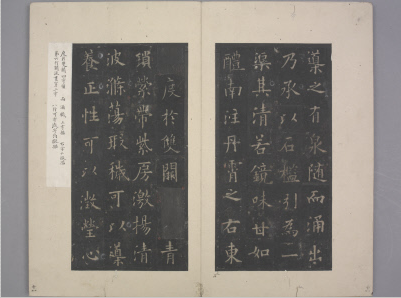 導之有泉隨而涌出
乃承以石檻引為一
渠其清若鏡味甘如
醴南注丹霄之右東
度於雙闕　青
瑣縈帶紫房激揚清
波滌蕩瑕穢可以導
養正性可以澂瑩心